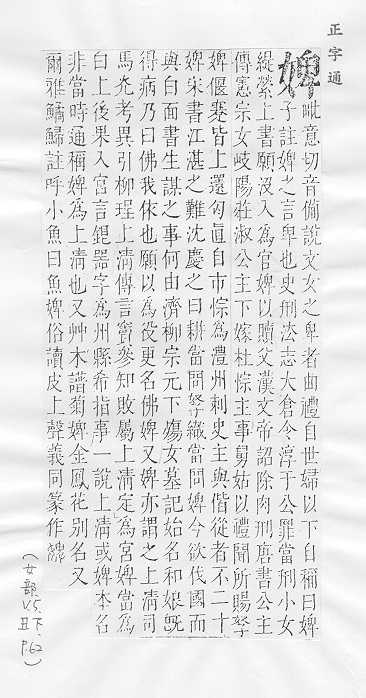 正字通
婢
毗意切音備說文女之卑者曲禮自世婦以下自稱曰婢
子註婢之言卑也史刑法志大倉令淳于公罪當刑小女
緹縈上書願沒入爲官婢以贖父漢文帝詔除肉刑唐書公主
傳憲宗女岐陽莊淑公主下嫁杜悰主事舅姑以禮聞所賜孥
婢偃蹇皆上還匃直自市悰爲澧州刺史主與偕從者不二十
婢宋書江湛之難沈慶之曰耕當問孥織當問婢今欲伐國而
與白面書生謀之事何由濟柳宗元下殤女墓記始名和娘旣
得病乃曰佛我依也願以爲役更名佛婢又婢亦謂之上淸司
馬光考異引柳珵上淸傳言竇參知敗屬上淸定爲宮婢當爲
白上後果入宮言銀器字爲州縣希指事一說上淸或婢本名
非當時通稱婢爲上淸也又艸木譜菊婢金鳳花別名又
爾雅鱊鯞註呼小魚曰魚婢俗讀皮上聲義同篆作
(女部
V.5.
丑下.
P.62)